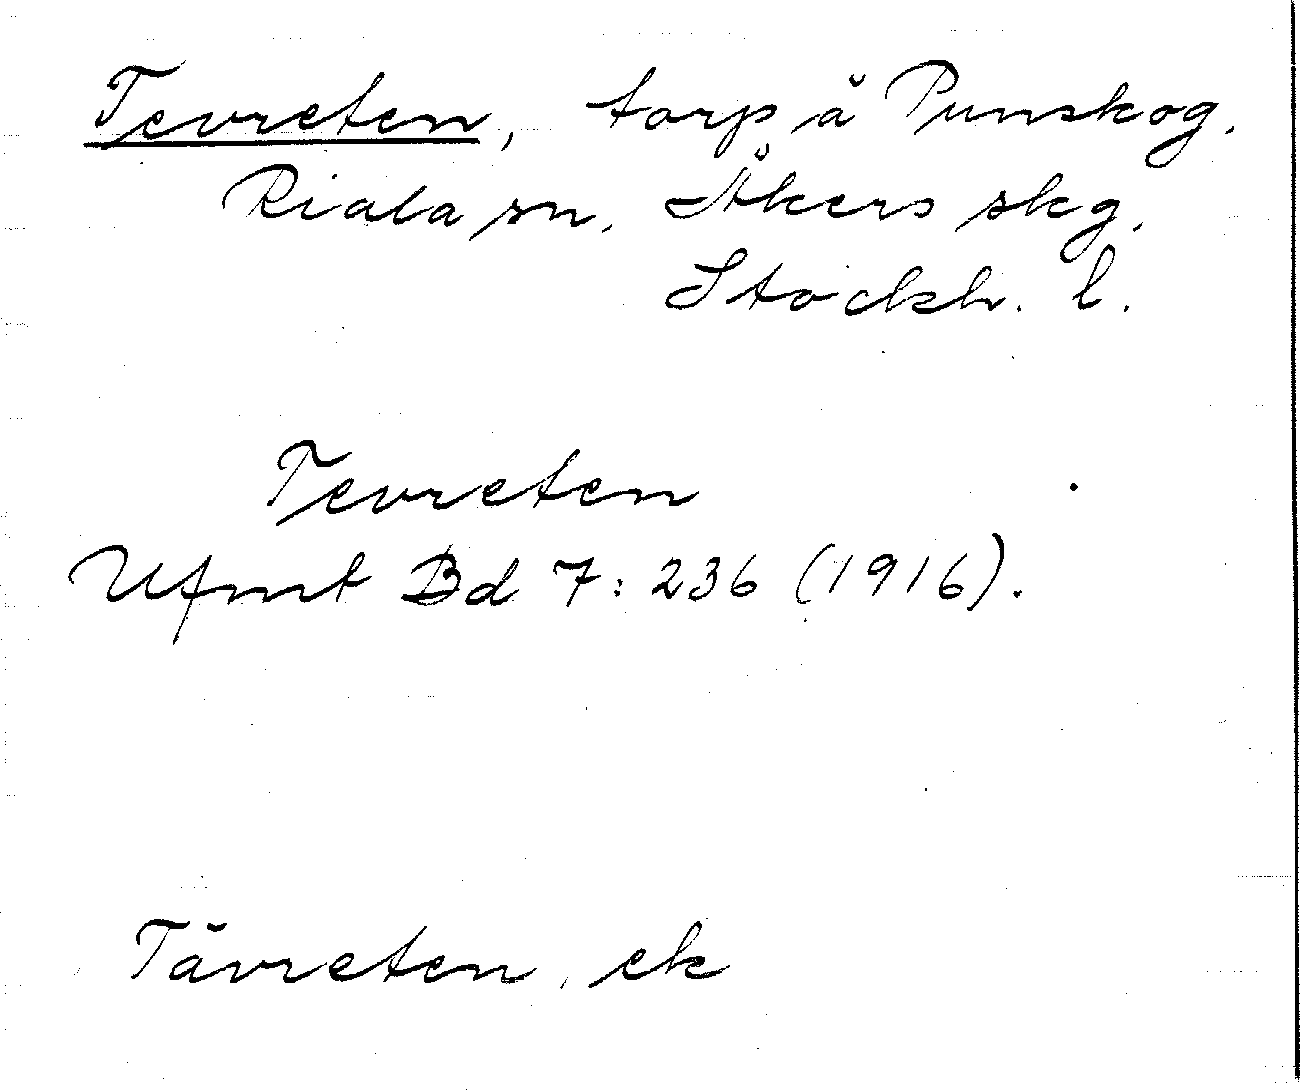 Tevreten, torp å Punskog.
Riala sn, Åkers skg.
Stockh. l.
Tevreten
Ufmt Bd 7: 236 (1916).
Tävreten, ek